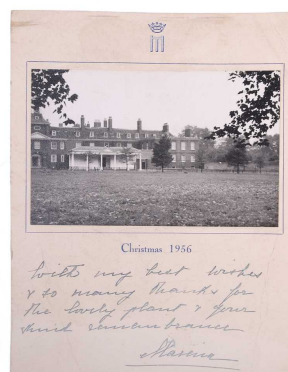 Christmas 1956
With my best wishes
& so many thanks for
the lovely plant & your
kind remembrance
Marina